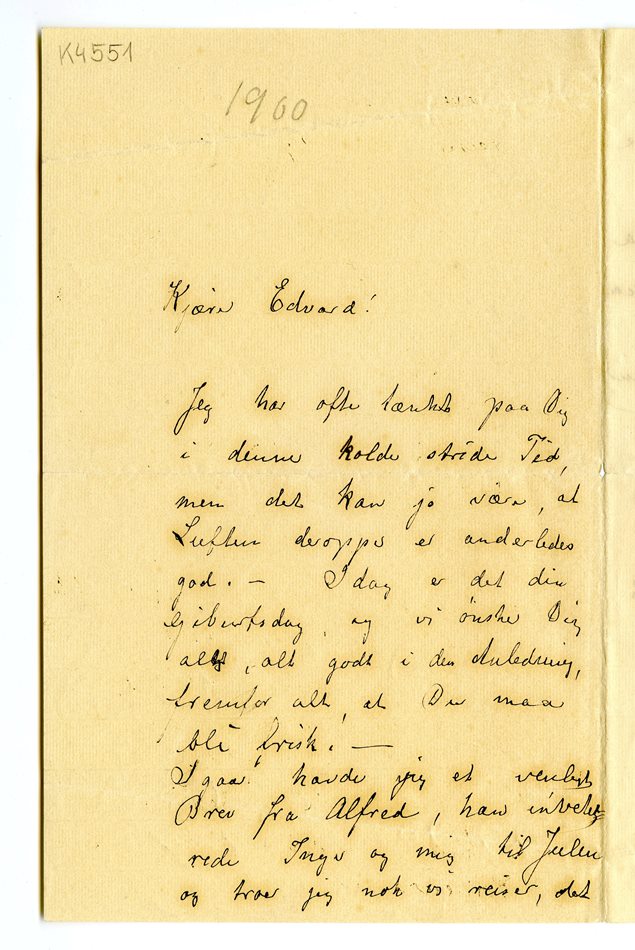 K4551
1900
Kjære Edvard!
Jeg har ofte tænkt paa Dig
i denne kolde stride Tid,
men det kan jo være, at
Luften deroppe er anderledes
god. — Idag er det din
Geburtsdag, og vi ønske Dig
alt, alt godt i den Anledning,
fremfor alt, at Du maa
bli frisk! —
Igaar havde jeg et venligt
Brev fra Alfred, han invite-
rede Inger og mig til Julen
og troer jeg nok vi reiser, det